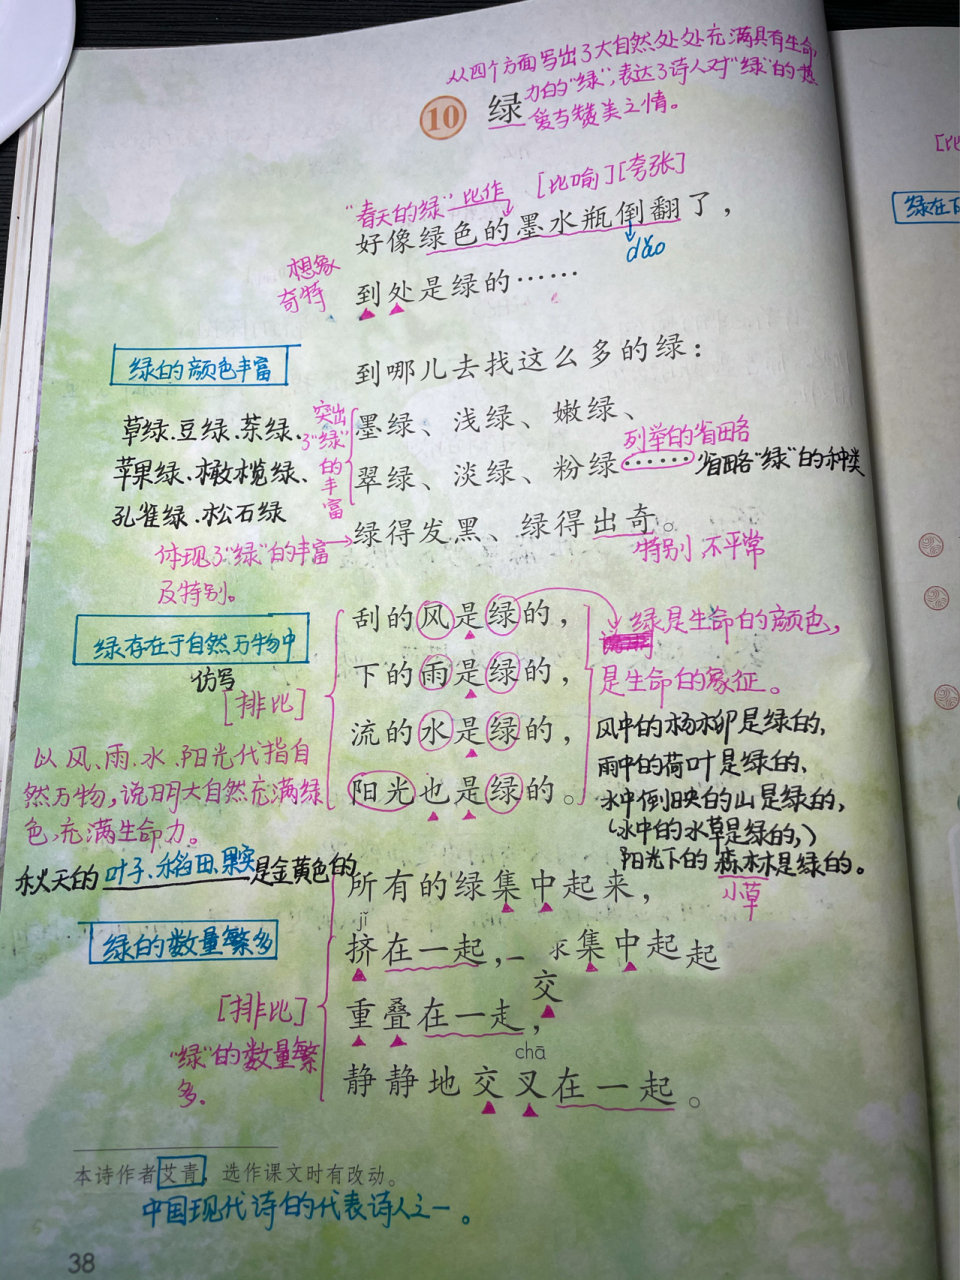 从四个方面写出了大自然处处充满具有生命
力的“绿”,表达了诗人对“绿”的热
爱与赞美之情。
10 绿
“春天的绿”比作 [比喻][夸张]
好像绿色的墨水瓶倒翻了，
dào
想象
奇特
到处是绿的……
绿的颜色丰富
到哪儿去找这么多的绿：
草绿、豆绿、茶绿、
苹果绿、橄榄绿、
孔雀绿、松石绿
突出
了“绿”
的
丰
富
墨绿、浅绿、嫩绿、
列举的省略
翠绿、淡绿、粉绿……
省略“绿”的种类
绿得发黑、绿得出奇。
特别 不平常
体现了“绿”的丰富
及特别。
绿存在于自然万物中
仿写
[排比]
刮的风是绿的，
下的雨是绿的，
流的水是绿的，
阳光也是绿的。
绿是生命的颜色,
是生命的象征。
以风、雨、水、阳光代指自
然万物,说明大自然充满绿
色,充满生命力。
风中的杨柳是绿的,
雨中的荷叶是绿的,
水中倒映的山是绿的,
(水中的水草是绿的,)
阳光下的森林是绿的。
小草
秋天的叶子、稻田、果实是金黄色的
所有的绿集中起来，
绿的数量繁多
jǐ
挤在一起，
集中起
起
交
[排比]
重叠在一走，
“绿”的数量繁
多.
chā
静静地交叉在一起。
本诗作者艾青，选作课文时有改动。
中国现代诗的代表诗人之一。
38
[比
绿在